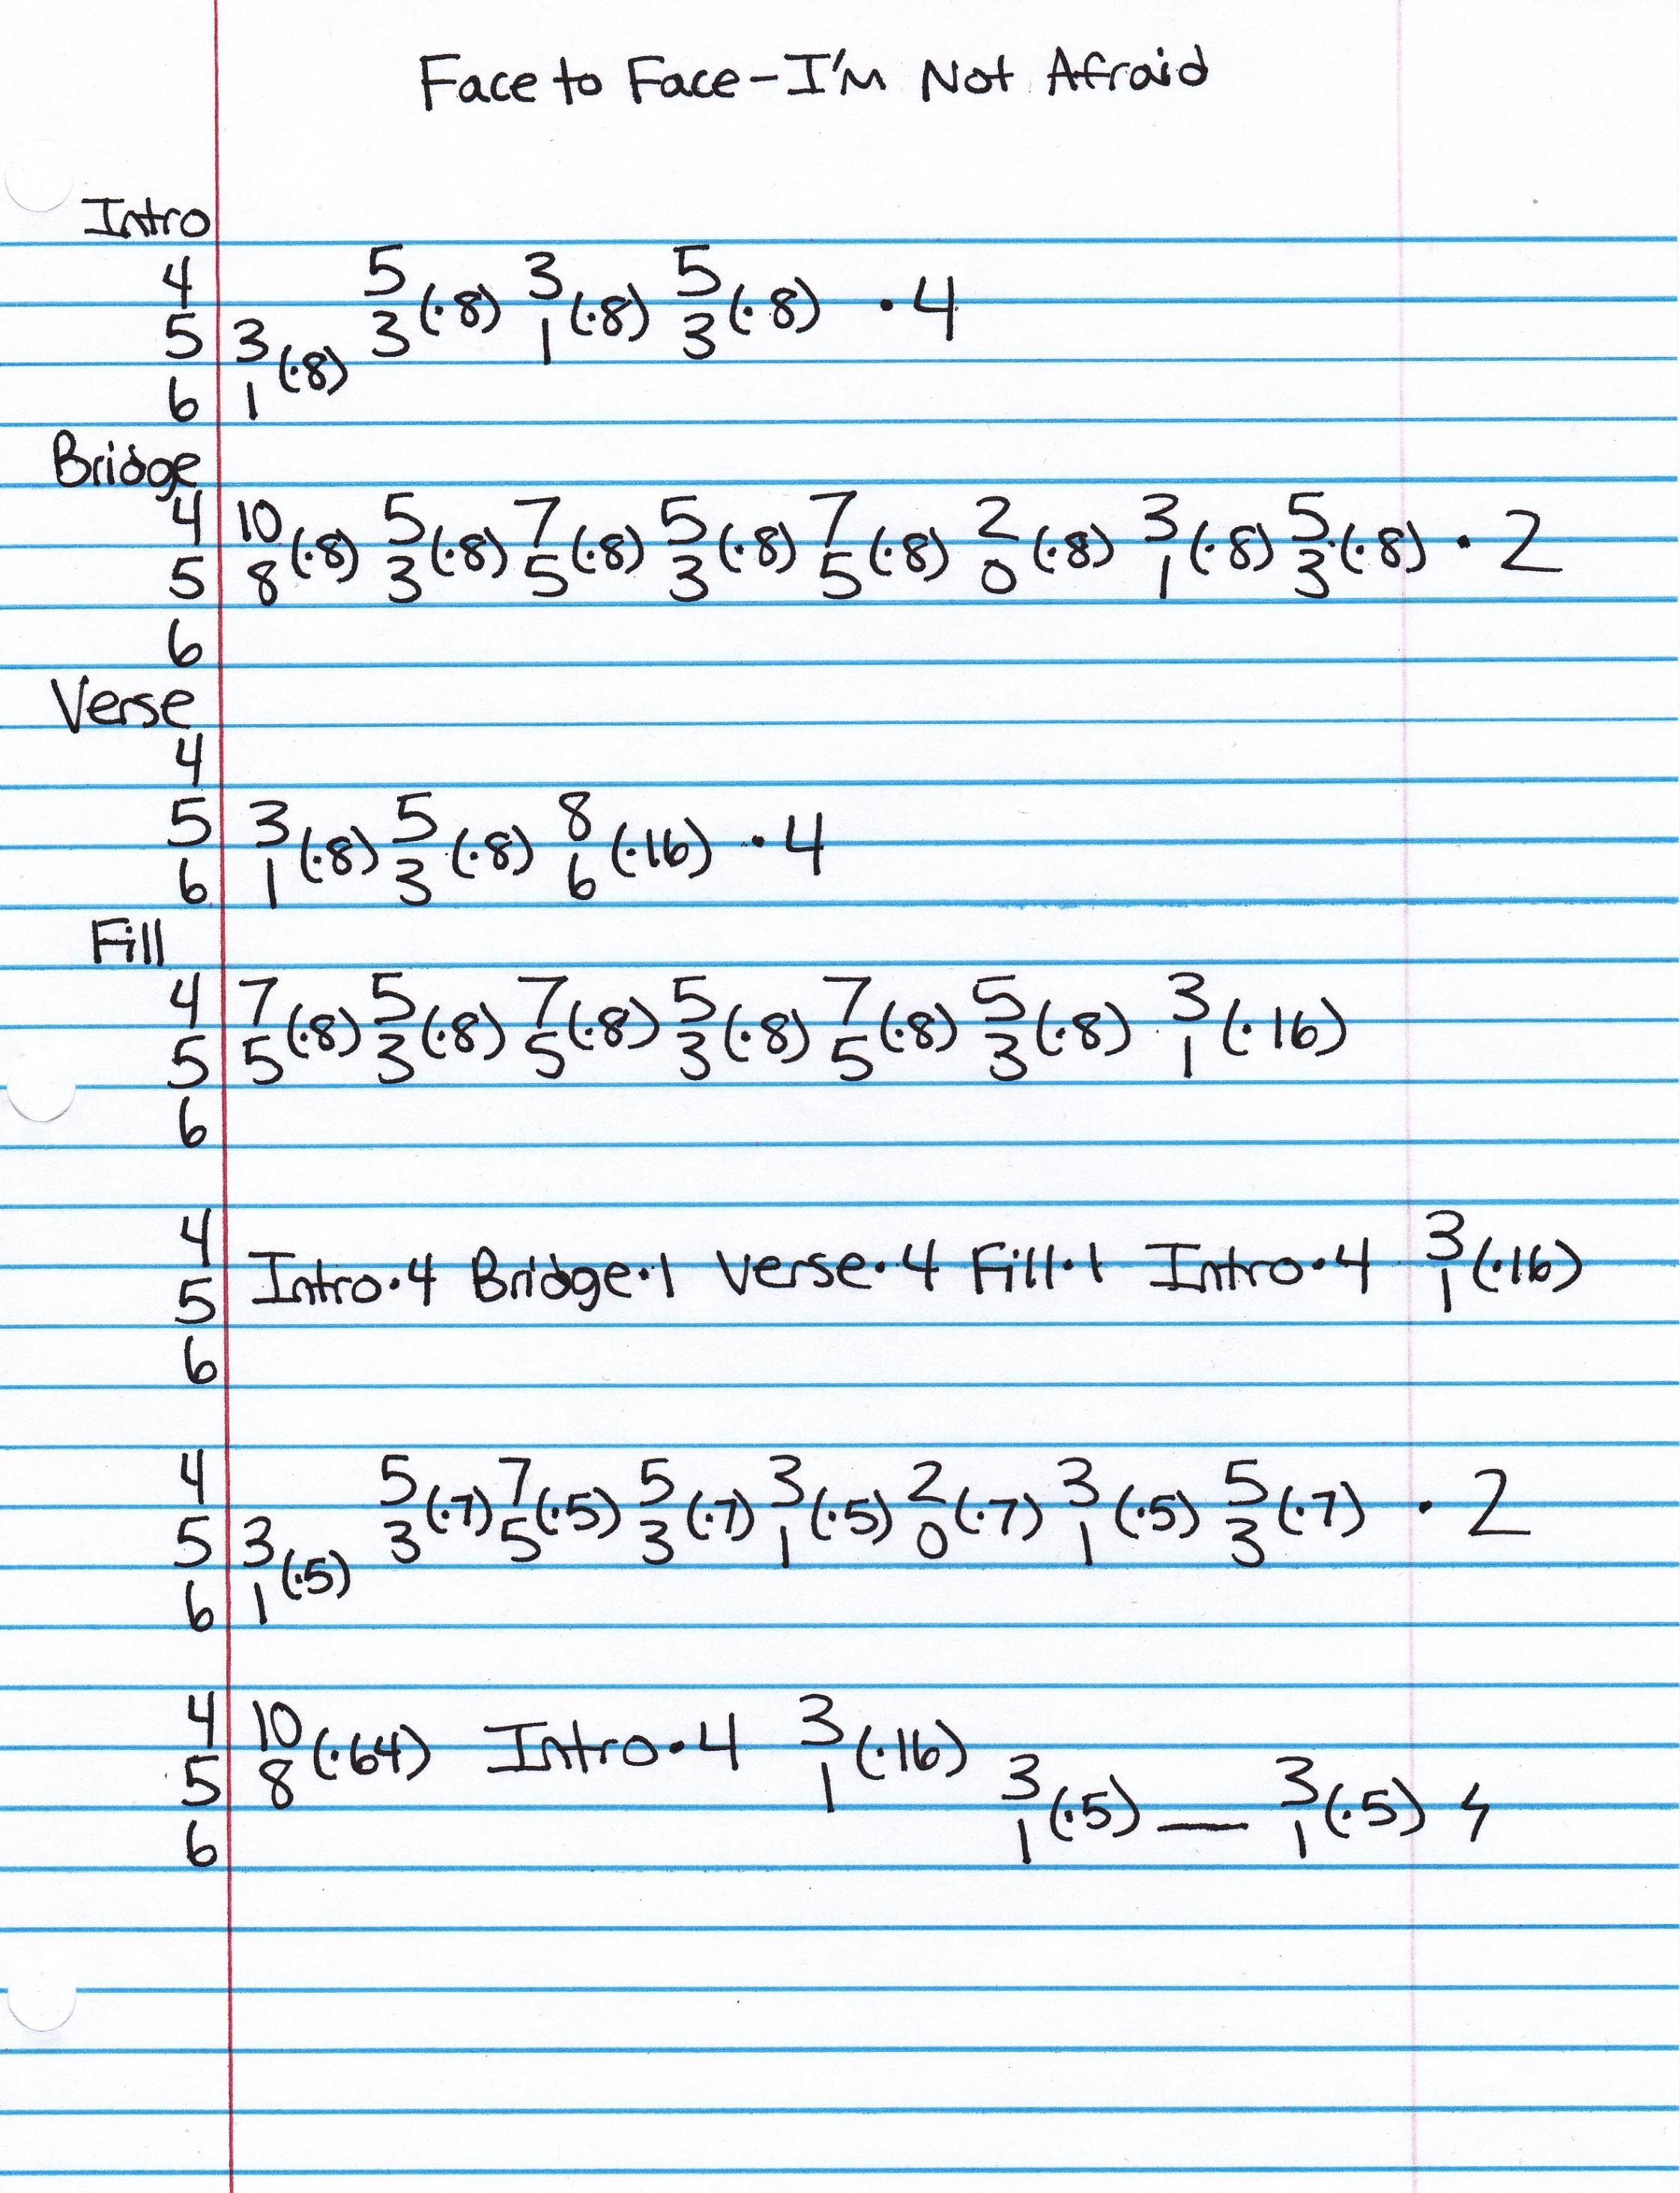 Face to Face-I'm Not Afraid
Intro
4 5 3 5
5 3 3(·8) 1(·8) 3(·8) ·4
6 1(·8)
Bridge
4 10 5 7 5 7 2 3 5
5 8(·8) 3(·8) 5(·8) 3(·8) 5(·8) 0(·8) 1(·8) 3(·8) ·2
6
Verse
4
5 3 5 8
6 1(·8) 3(·8) 6(·16) ·4
Fill
4 7 5 7 5 7 5 3
5 5(·8) 3(·8) 5(·8) 3(·8) 5(·8) 3(·8) 1(·16)
6
4 3
5 Intro·4 Bridge·1 Verse·4 Fill·1 Intro·4 1(·16)
6
4 5 7 5 3 2 3 5
5 3 3(·7) 5(·5) 3(·7) 1(·5) 0(·7) 1(·5) 3(·7) ·2
6 1(·5)
4 10 3
5 8(·64) Intro·4 1(·16) 3 3
6 1(·5) — 1(·5)